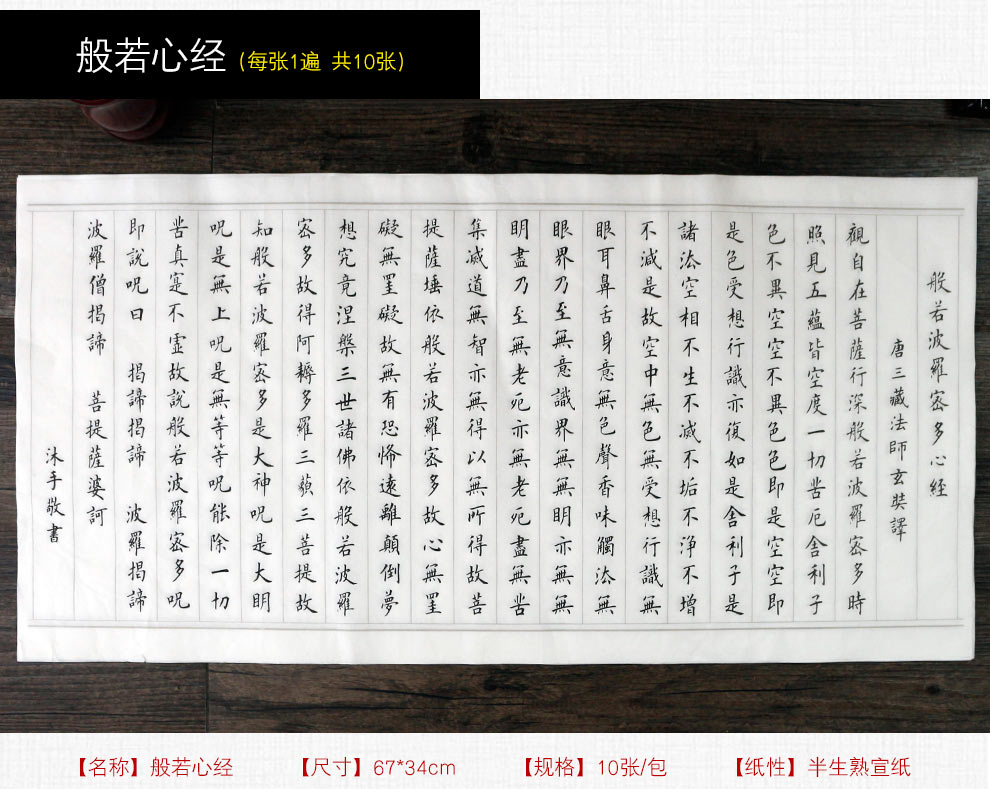 般若心经 (每张1遍 共10张)
般若波羅密多心経
唐三藏法師玄奘譯
觀自在菩薩行深般若波羅密多時
照見五蘊皆空度一切苦厄舍利子
色不異空空不異色色即是空空即
是色受想行識亦復如是舍利子是
諸法空相不生不滅不垢不净不增
不減是故空中無色無受想行識無
眼耳鼻舌身意無色聲香味觸法無
眼界乃至無意識界無無明亦無無
明盡乃至無老死亦無老死盡無苦
集滅道無智亦無得以無所得故菩
提薩埵依般若波羅密多故心無罣
礙無罣礙故無有恐怖遠離顛倒夢
想究竟涅槃三世諸佛依般若波羅
密多故得阿耨多羅三藐三菩提故
知般若波羅密多是大神呪是大明
呪是無上呪是無等等呪能除一切
苦真寔不虛故説般若波羅密多呪
即説呪曰 揭諦揭諦 波羅揭諦
波羅僧揭諦 菩提薩婆訶
沐手敬書
【名称】般若心经 【尺寸】67*34cm 【规格】10张/包 【纸性】半生熟宣纸